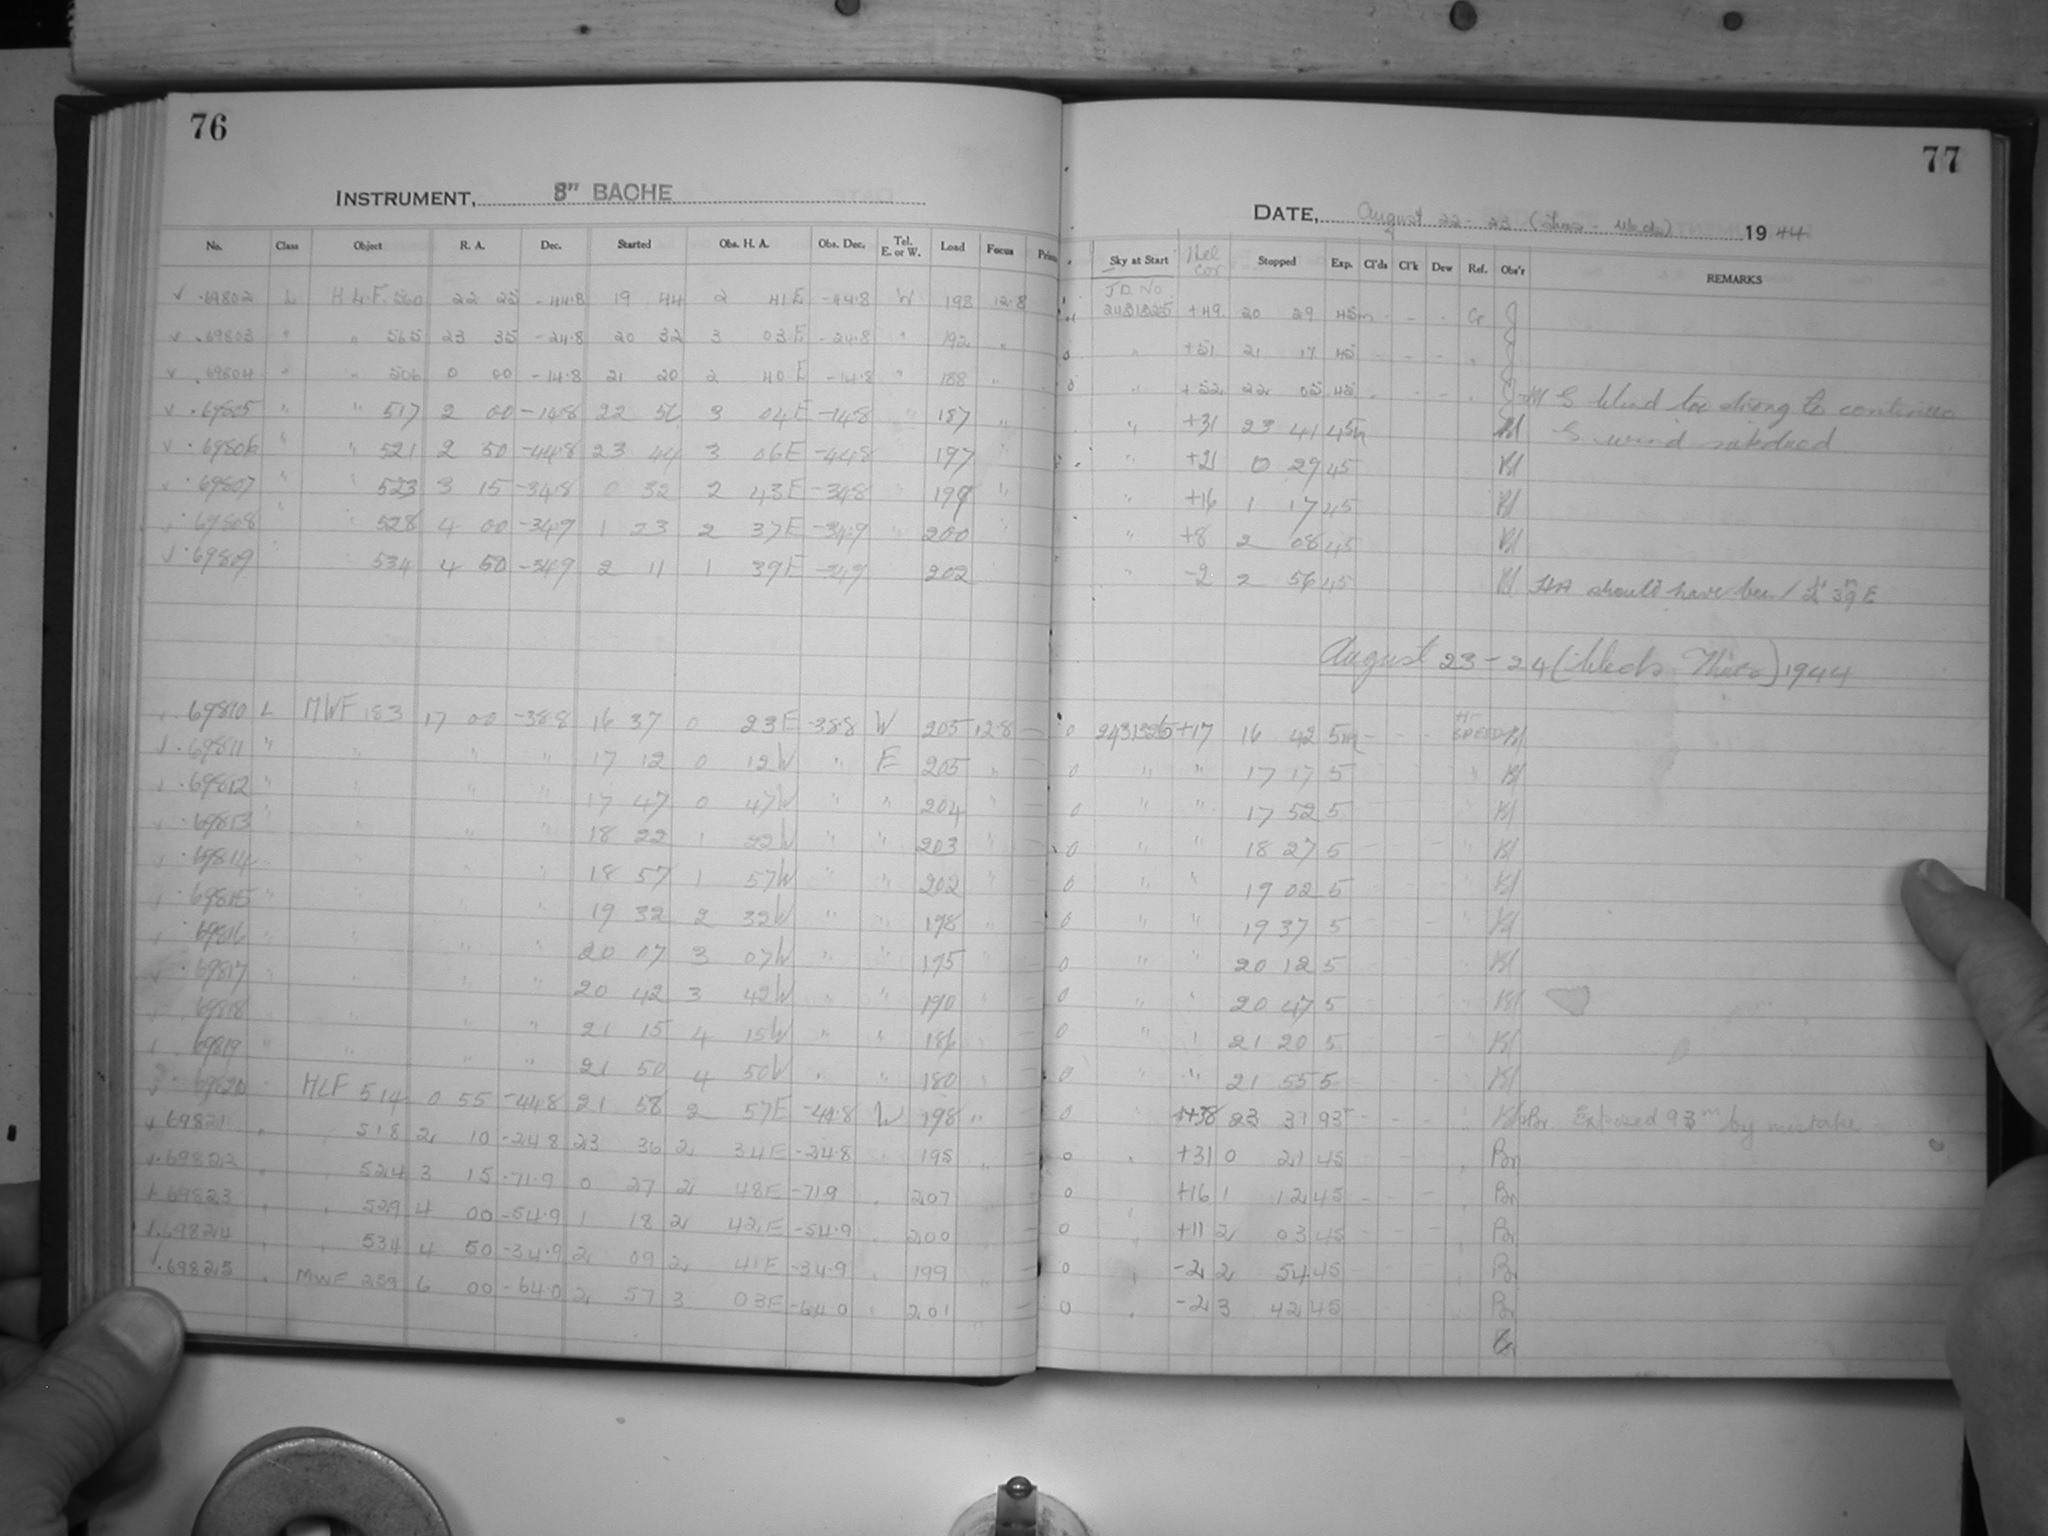 76
INSTRUMENT, 8" BACHE
No. Class Object R. A. Dec. Started Obs. H. A. Obs. Dec. Tel. E. or W. Load Focus
69802 L H.L.F. 560 22 25 -44.8 19 44 2 41 E -44.8 W 198 12.8
69803 " " 565 23 35 -24.8 20 32 3 03 E -24.8 " 192 "
69804 " " 506 0 00 -14.8 21 20 2 40 E -14.8 " 188 "
69805 " " 517 2 00 -14.8 22 56 3 04 E -14.8 187 "
69806 " " 521 2 50 -44.8 23 44 3 06 E -44.8 197 "
69807 " " 523 3 15 -34.8 0 32 2 43 E -34.8 199 "
69808 528 4 00 -34.9 1 23 2 37 E -34.9 200
69809 534 4 50 -34.9 2 11 1 39 E -34.9 202
69810 L MWF 183 17 00 -38.8 16 37 0 23 E -38.8 W 205 12.8
69811 " " " " 17 12 0 12 W " E 205 "
69812 " " " " 17 47 0 47 W " " 204 "
69813 " " " " 18 22 1 22 W " " 203 "
69814 " 18 57 1 57 W " " 202 "
69815 " 19 32 2 32 W " " 198
69816 " " 20 07 3 07 W " " 195
69817 " " 20 42 3 42 W " " 190
69818 " " 21 15 4 15 W " " 186
69819 " " " " 21 50 4 50 W " " 180
69820 HLF 514 0 55 -44.8 21 58 2 57 E -44.8 W 198 "
69821 518 2 10 -24.8 23 36 2 34 E -24.8 195
69822 524 3 15 -71.9 0 27 2 48 E -71.9 207
69823 529 4 00 -54.9 1 18 2 42 E -54.9 200
69824 534 4 50 -34.9 2 09 2 41 E -34.9 199
69825 MWF 259 6 00 -64.0 2 57 3 03 E -64.0 201
77
DATE, August 22-23 (Tues - Weds) 19 44
Sky at Start Hel Cor Stopped Exp. Cl'ds Cl'k Dew Ref. Obs'r REMARKS
J.D. No.
2431325 +49 20 29 45m - - - Cr J
" +51 21 17 45 - - - " J
" +52 22 05 45 - - " J S Wind too strong to continue
" +31 23 41 45m Bl S wind subdued
" +21 0 29 45 Bl
" +16 1 17 45 Bl
" +8 2 08 45 Bl
" -2 2 56 45 Bl HA should have been 2 39 E
August 23-24 (Weds - Thurs) 1944
0 2431326 +17 16 42 5m - - - HI-SPEED Bl
0 " " 17 17 5 " Bl
0 " " 17 52 5 Bl
0 " " 18 27 5 " Bl
0 " " 19 02 5 " Bl
0 " " 19 37 5 Bl
0 " " 20 12 5 Bl
0 " " 20 47 5 Bl
0 " " 21 20 5 Bl
0 " 21 55 5 Bl
0 +38 23 31 93 - - - Bl+Br Exposed 93m by mistake
0 +31 0 21 45 - - - Br
0 +16 1 12 45 - - - Br
0 +11 2 03 45 - - - Br
0 -2 2 54 45 Br
0 -2 3 42 45 Br